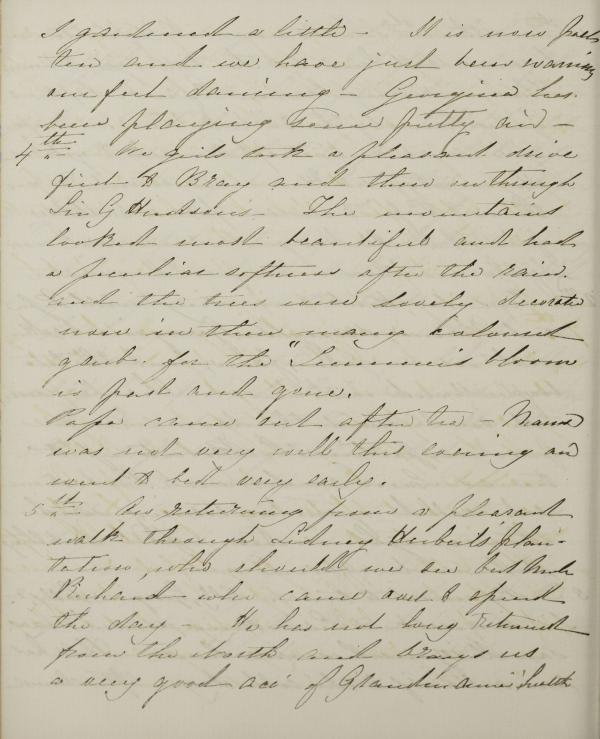 I gardened a little - It is now past
ten and we have just been warming
our feet dancing - Georgina has
been playing some pretty airs -
4th We girls took a pleasant drive
first to Bray and then in through
Sir G Hudsons - The mountains
looked most beautiful and had
a peculiar softness after the rain.
and the trees were lovely decorated
now in their many coloured
garb. for the "Summer's bloom
is past and gone.
Papa came out after tea - Mama
was not very well this evening and
went to bed very early.
5th On returning from a pleasant
walk through Sidney Herberts' plan-
tations, who should we see but Uncle
Richard who came out to spend
the day - He has not long returned
from the North and brings us
a very good acct of Grandmama's health